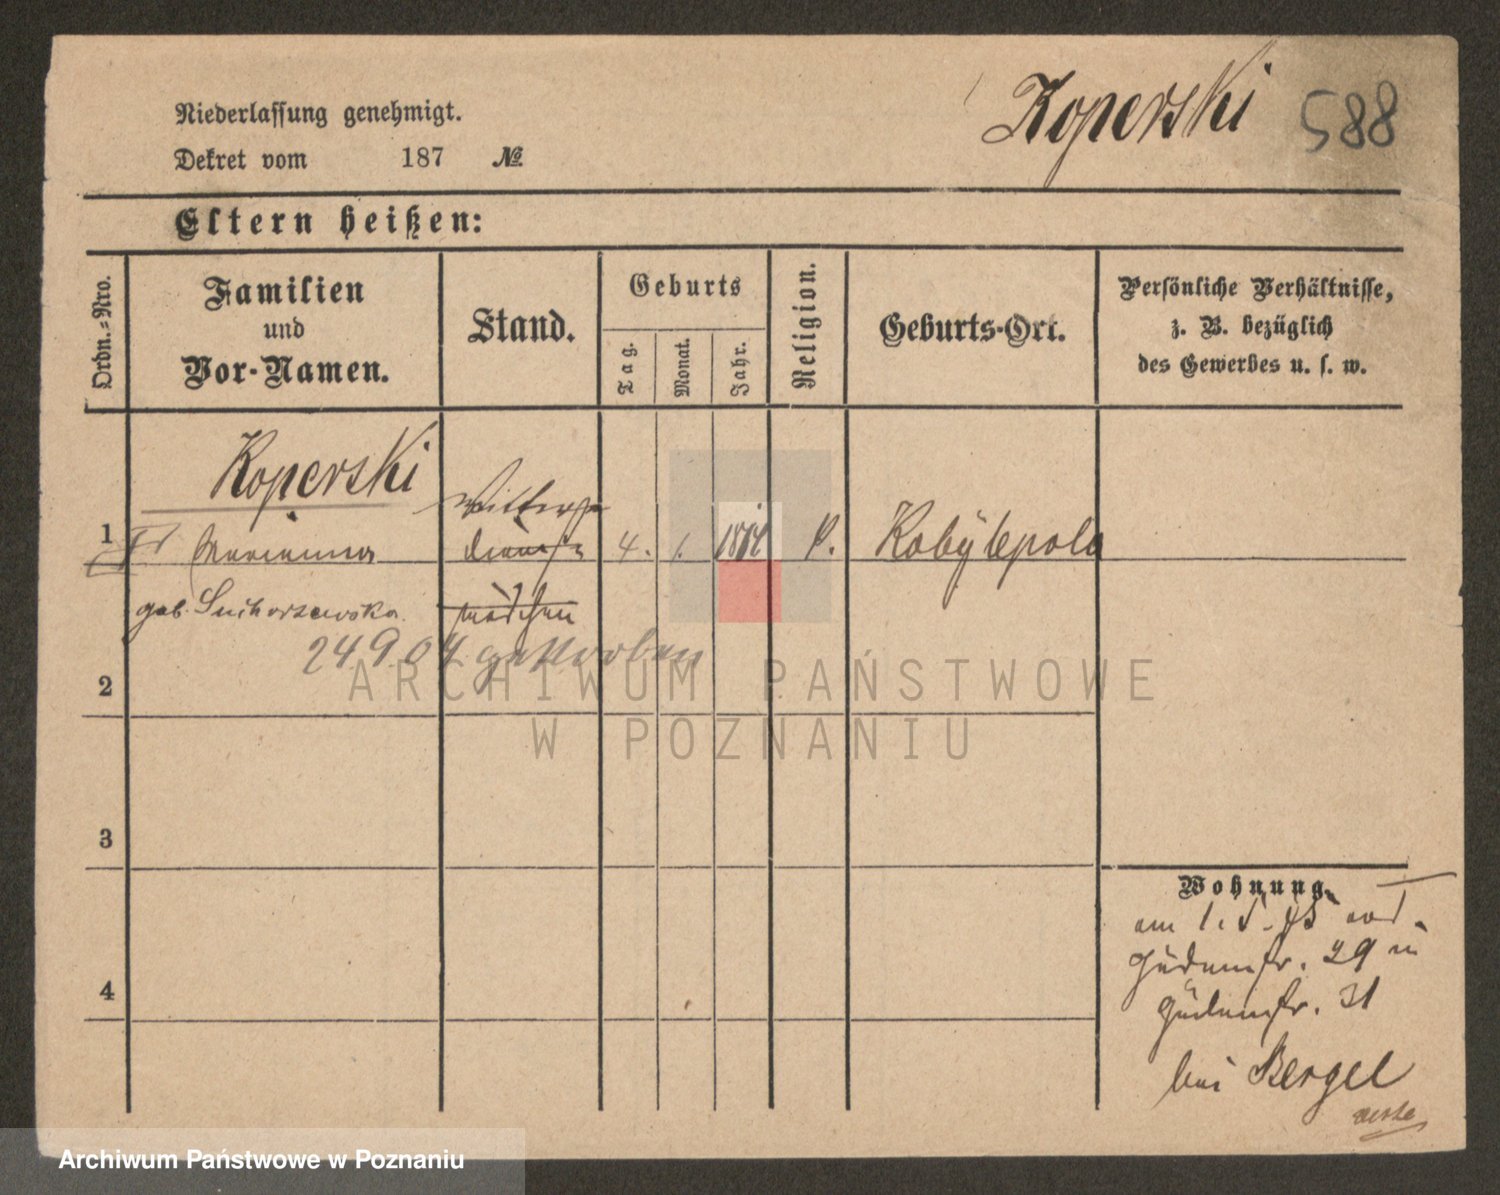 Niederlassung genehmigt.
Koperski 588
Dekret vom 187 №
Eltern heißen:
Ordn.-Nro.
Familien
und
Vor-Namen.
Stand.
Geburts
Tag.
Monat.
Jahr.
Religion.
Geburts-Ort.
Persönliche Verhältnisse,
z. B. bezüglich
des Gewerbes u. s. w.
Koperski
1 Marianna 4. 1. K. Kobylepole
geb. Suchorzewska
24 9 04 gestorben
2
3
4
Wohnung.
am 1.
Judenstr. 29 in
Judenstr. 31
bei Bergel
verte
ARCHIWUM PAŃSTWOWE
W POZNANIU
Archiwum Państwowe w Poznaniu